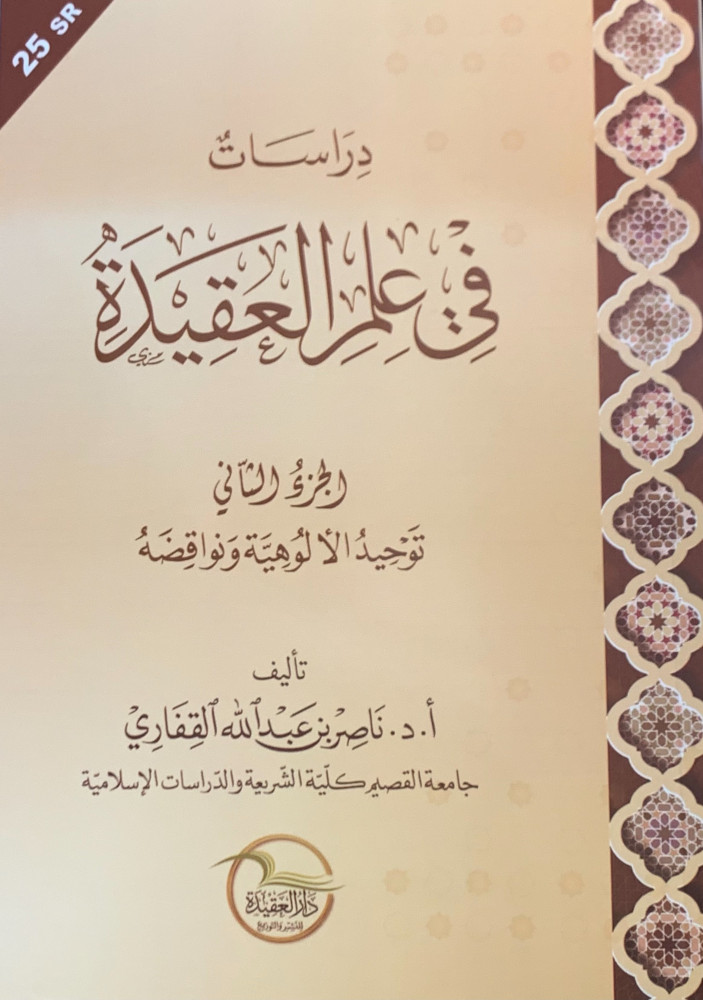 25 SR
دِرَاسَاتٌ
فِي عِلْمِ العَقِيْدَةِ
الجزءُ الثّاني
تَوْحِيدُ الألُوهِيَّة وَنواقِضَهُ
تأليف
أ. د. نَاصِر بن عَبْدالله القِفَارِيْ
جامعة القصيم كليّة الشّريعة والدّراسات الإسلاميّة
دَارُ العَقِيْدَة
للنشر والتوزيع